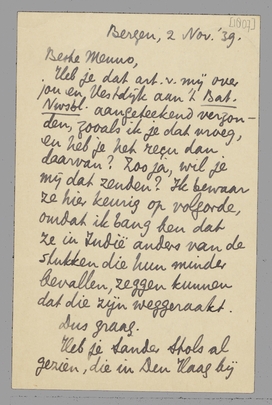 [1007]
Bergen, 2 Nov. '39.
Beste Menno,
Heb je dat art. v. mij over
jou en Vestdijk aan 't Bat.
Nwsbl. aangeteekend verzon-
den, zooals ik je dat vroeg,
en heb je het reçu dan
daarvan? Zoo ja, wil je
mij dat zenden? Ik bewaar
ze hier keurig op volgorde,
omdat ik bang ben dat
ze in Indië anders van de
stukken die hun minder
bevallen, zeggen kunnen
dat die zijn weggeraakt.
Dus graag.
Heb je Sander Stols al
gezien, die in Den Haag bij